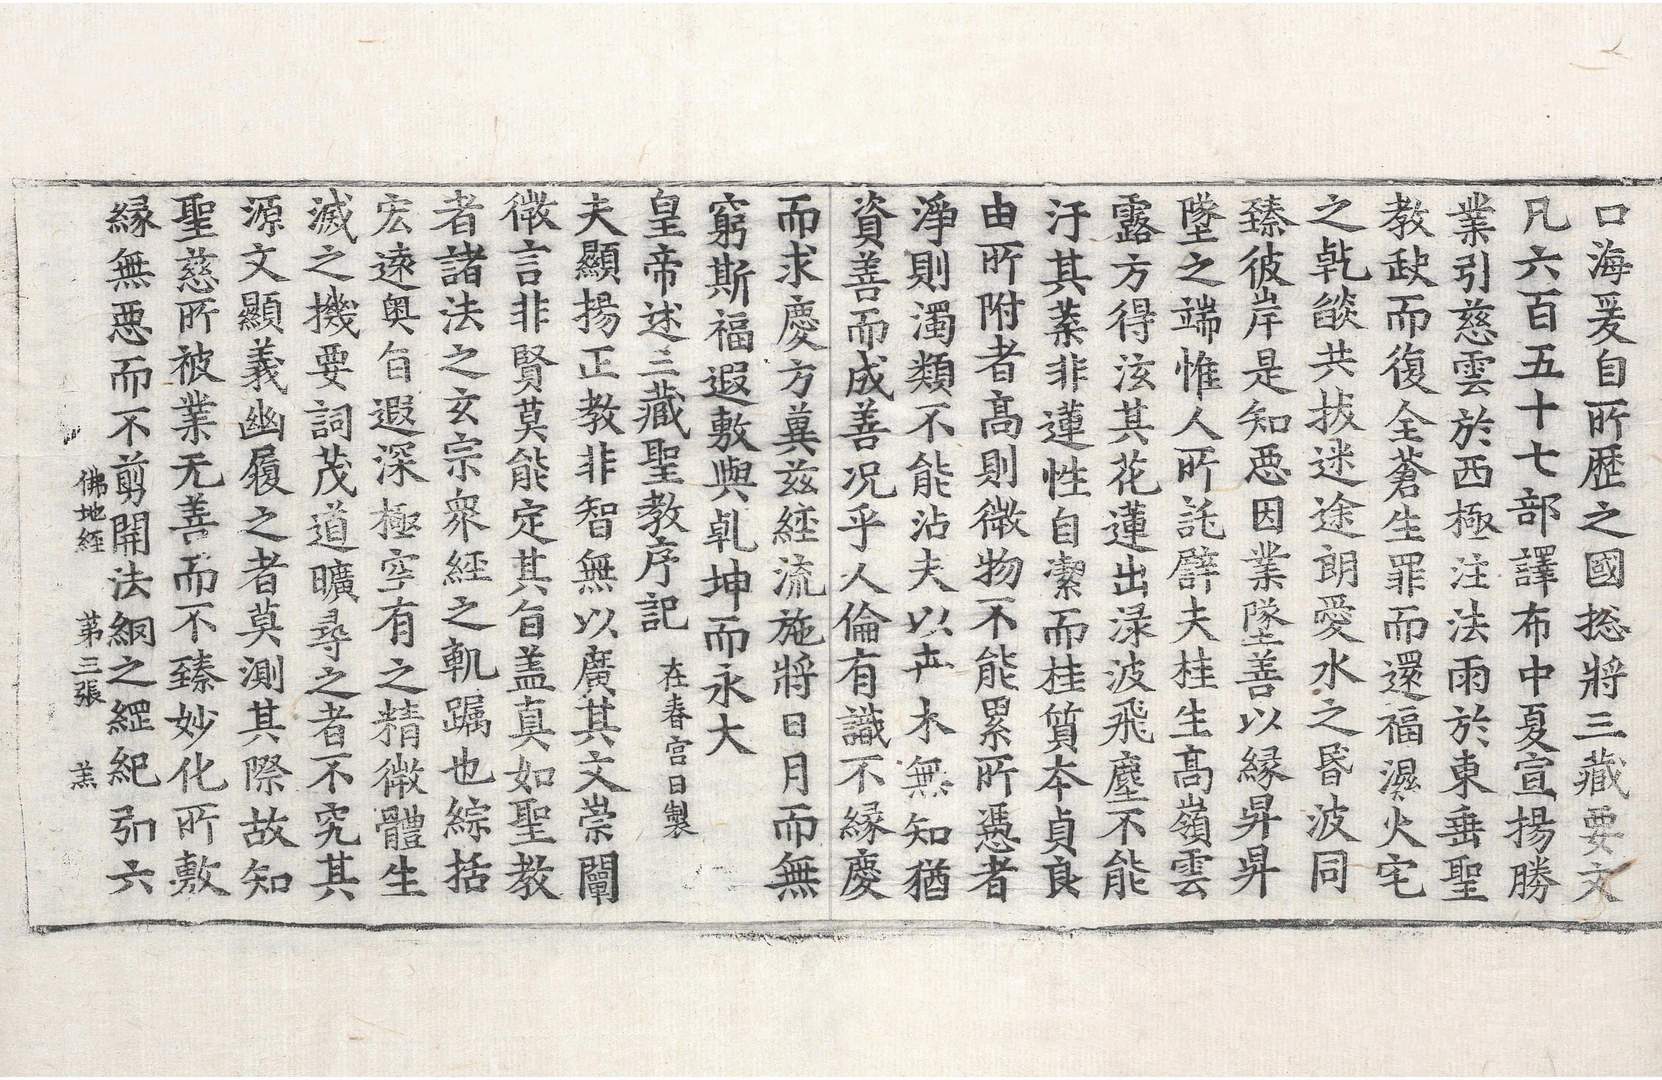 口海爰自所歷之國捴將三藏要文
凡六百五十七部譯布中夏宣揚勝
業引慈雲於西極注法雨於東垂聖
教𡙇而復全蒼生罪而還福濕火宅
之乾燄共拔迷途朗愛水之昬波同
臻彼岸是知惡因業墜善以緣昇昇
墜之端惟人所託譬夫桂生高嶺雲
露方得泫其花蓮出淥波飛塵不能
汙其葉非蓮性自潔而桂質本貞良
由所附者高則微物不能累所憑者
淨則濁類不能沾夫以卉木無知猶
資善而成善况乎人倫有識不緣慶
而求慶方冀兹經流施將日月而無
窮斯福遐敷與乹坤而永大
皇帝述三藏聖教序記 在春宮日製
夫顯揚正教非智無以廣其文崇闡
微言非賢莫能定其旨盖真如聖教
者諸法之玄宗衆經之軌躅也綜括
宏遠奧旨遐深極空有之精微體生
滅之機要詞茂道曠尋之者不究其
源文顯義幽履之者莫測其際故知
聖慈所被業无善而不臻妙化所敷
緣無惡而不剪開法網之綱紀引六
佛地經 第三張 羔